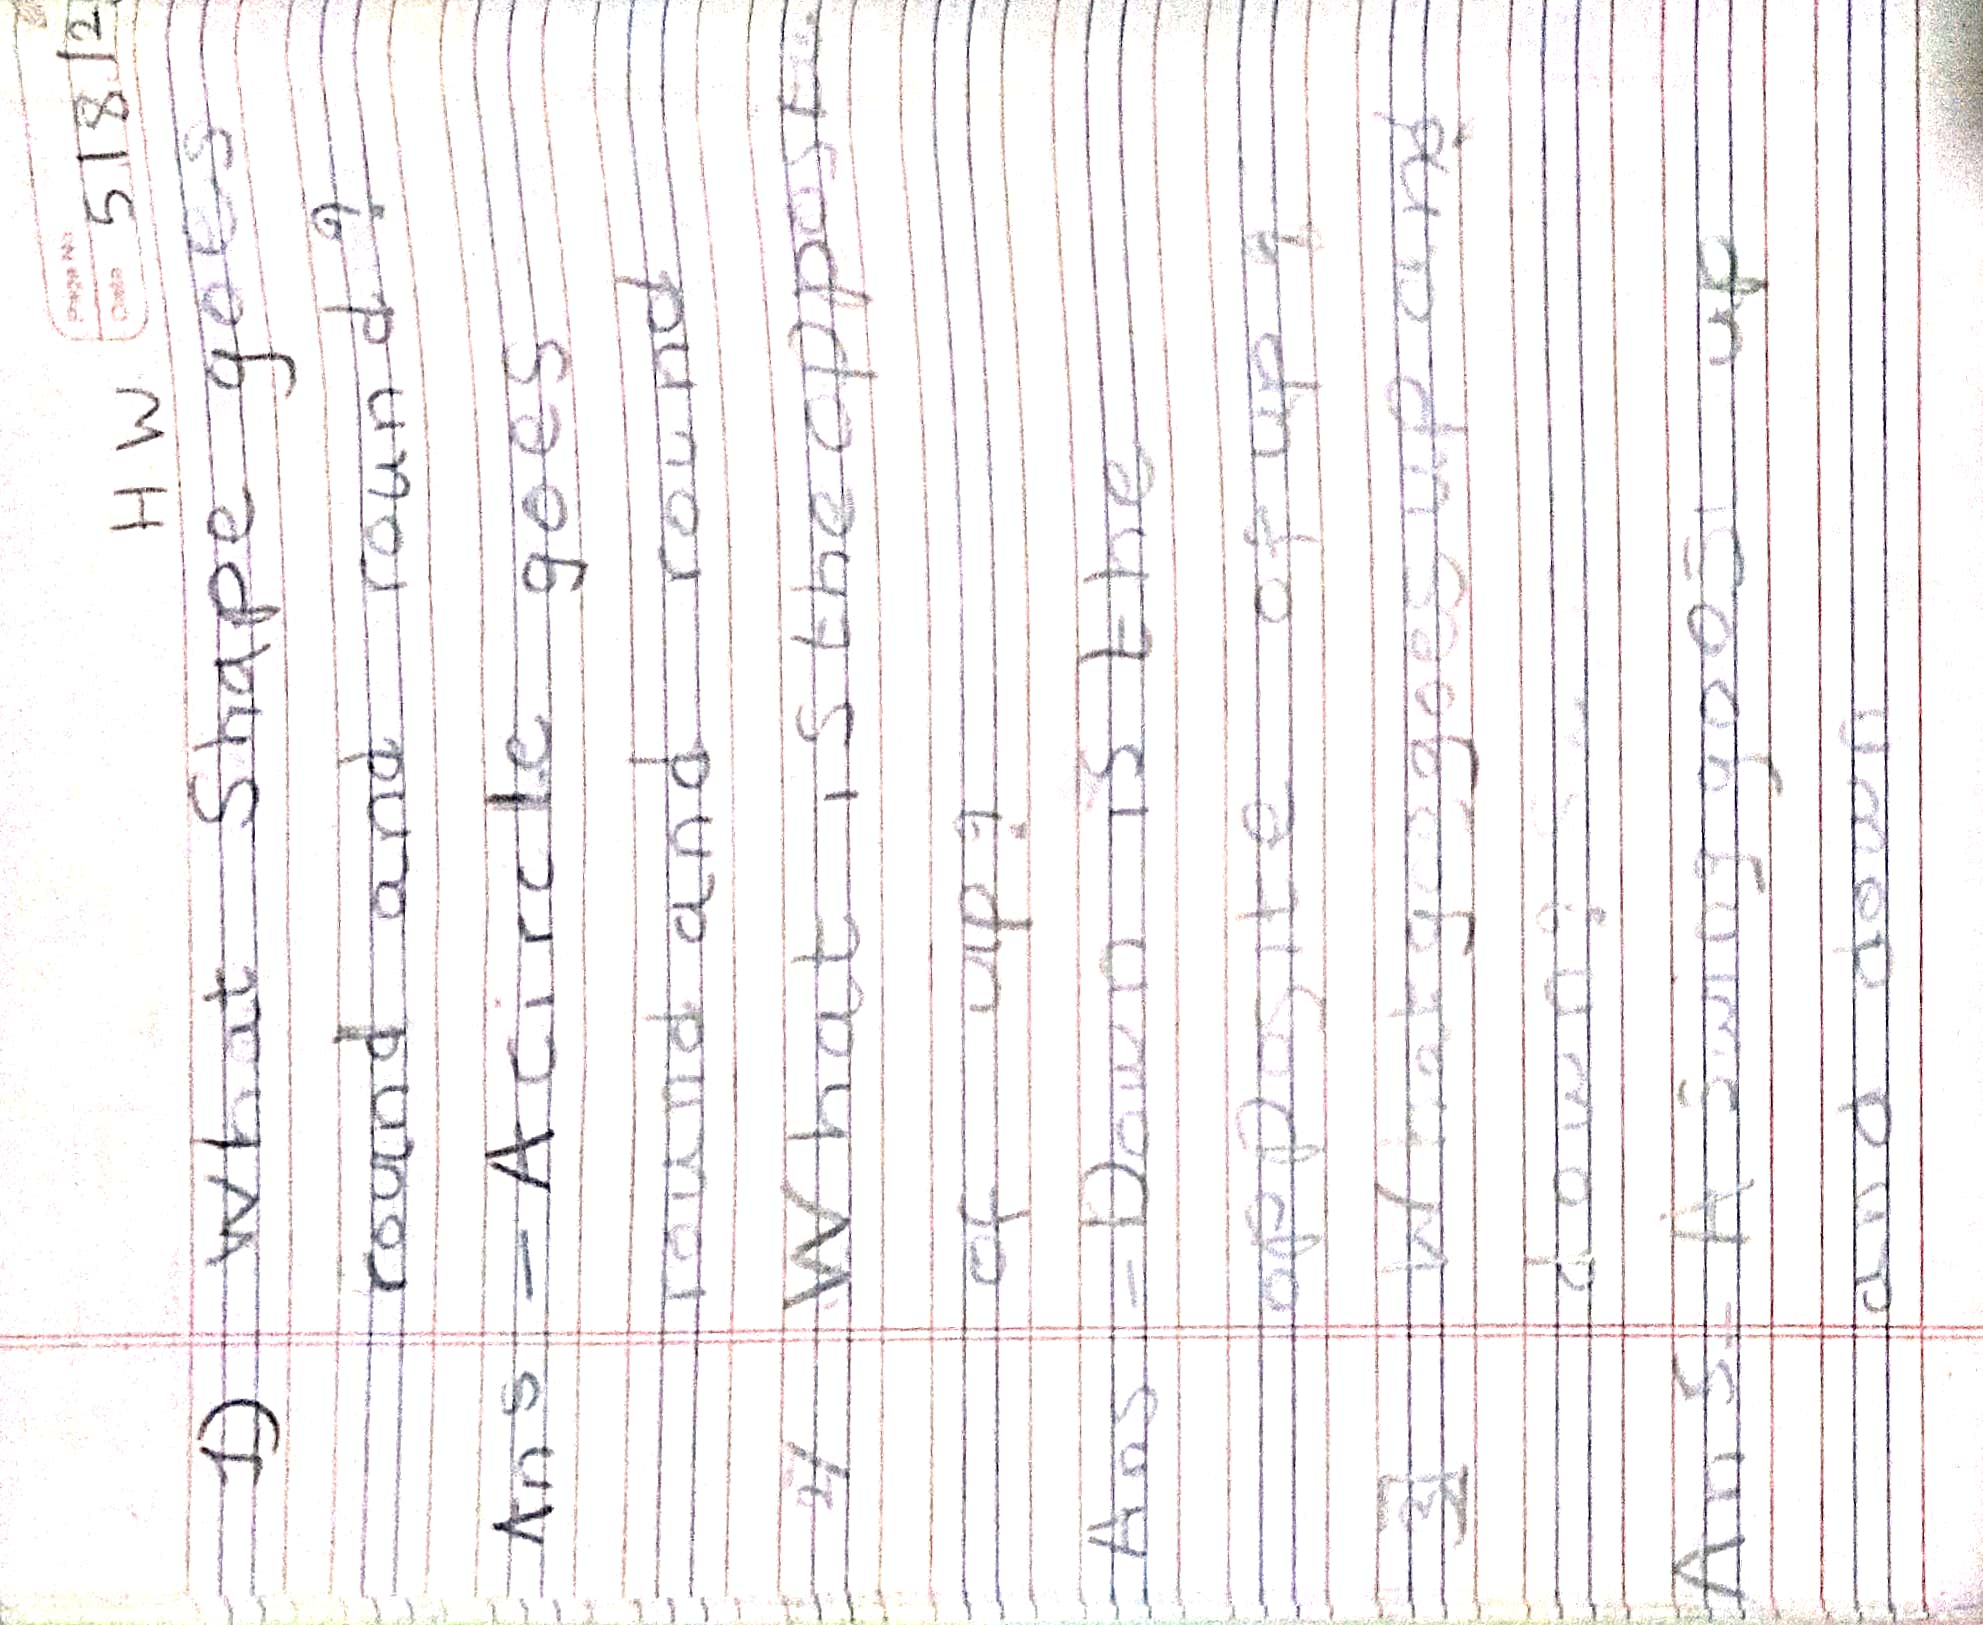 Page No.
Date 5/8/2
HW
1) What Shape goes
round and round ?
Ans - A circle goes
round and round
What is the oposite
of up ?
Ans - Down is the
opposite of up ?
3] What goes up and
down ?
Ans - A swing goes up
and down